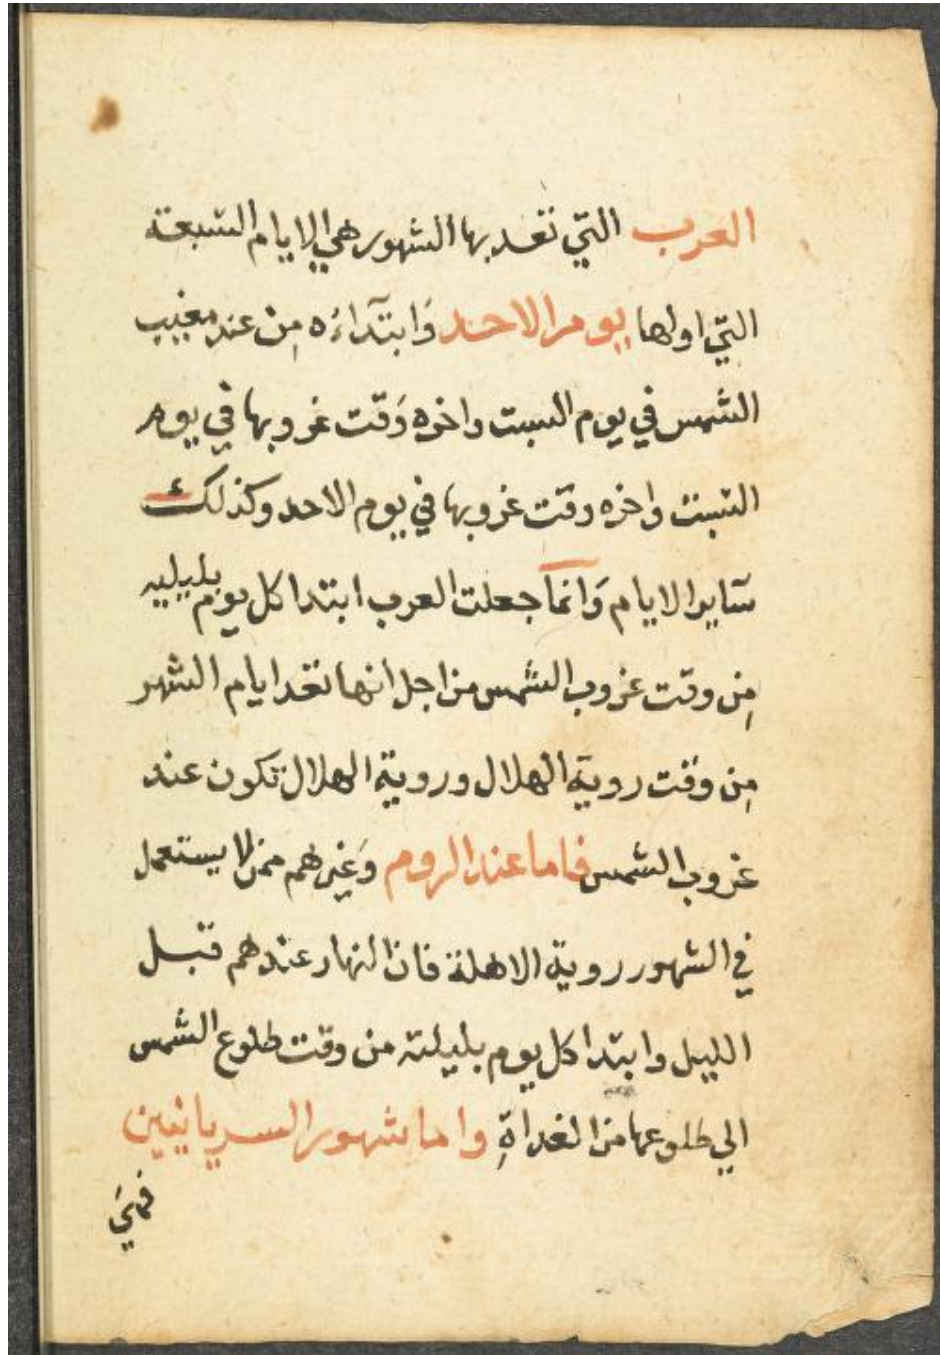 العرب التي تعد بها الشهور هي الايام السبعة
التي اولها يوم الاحد وَابتدآءُه مِن عند مغيب
الشمس في يوم السبت واخره وَقت غروبها في يوم
السبت واخره وقت غروبها في يوم الاحد وكذلك
سآير الايام وَانمآ جعلت العرب ابتدا كل يوم بليليه
مِن وقت غروب الشمس من اجل انها تعد ايام الشهر
مِن وقت روية الهلال وروية الهلال تكون عند
غروب الشمس فاما عند الروم وَغيرهم ممن لا يستعمل
في الشهور روية الاهلة فان النهار عندهم قبل
الليل وابتدا كل يوم بليلته من وقت طلوع الشمس
الي طلوعها من الغداةِ واما شهور السريانيين
فهَي